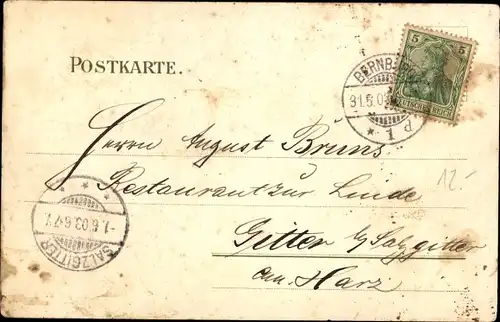 5 5
DEUTSCHES REICH
BERNBURG
31.5.03
* 1 d
POSTKARTE.
Herrn August Bruns
Restaurant zur Linde
12.-
Gitter b/Salzgitter
am Harz
-1.6.03.6-7V.
SALZGITTER